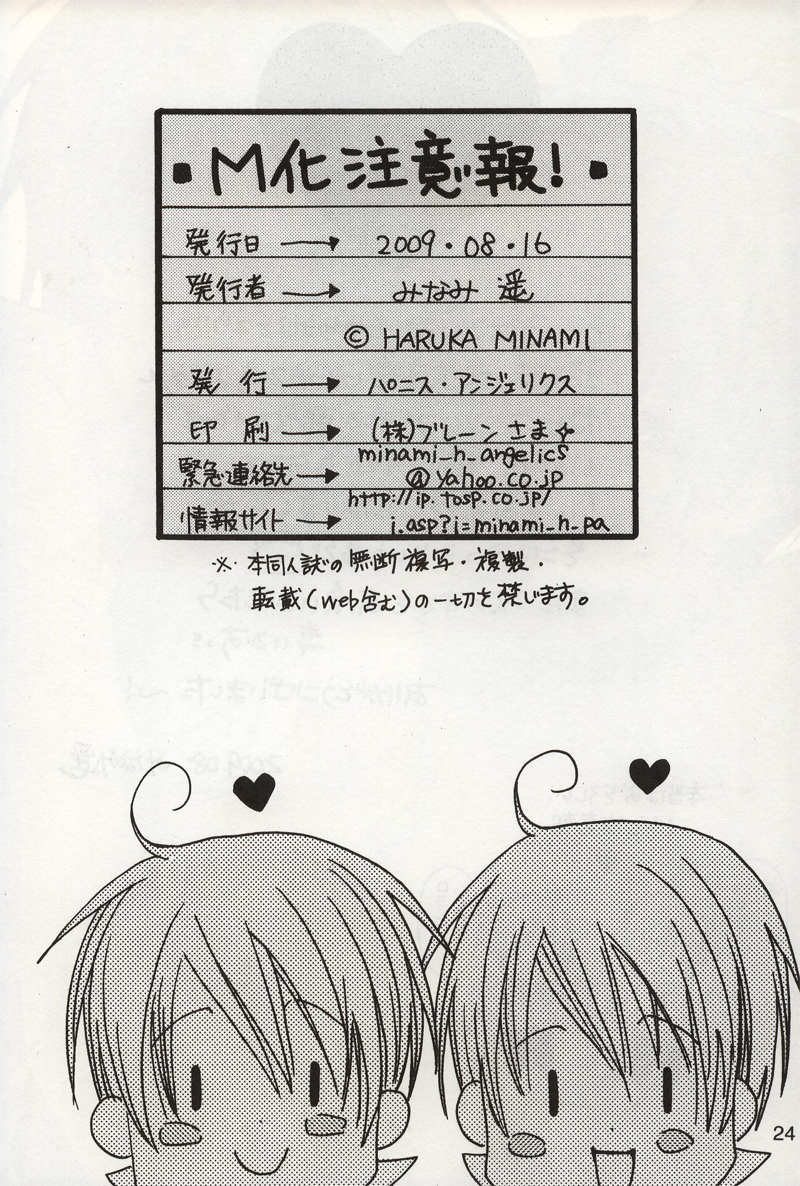 ・M化注意報!・
発行日 → 2009・08・16
発行者 → みなみ 遥
© HARUKA MINAMI
発 行 → ハ゜ロニス・アンジェリクス
印 刷 → (株)ブレーンさま☆
緊急連絡先 → minami_h_angelics
@yahoo.co.jp
情報サイト → http://ip.tosp.co.jp/
i.asp?i=minami_h_pa
※ 本同人誌の無断複写・複製・
転載(web含む)の一切を禁じます。
24